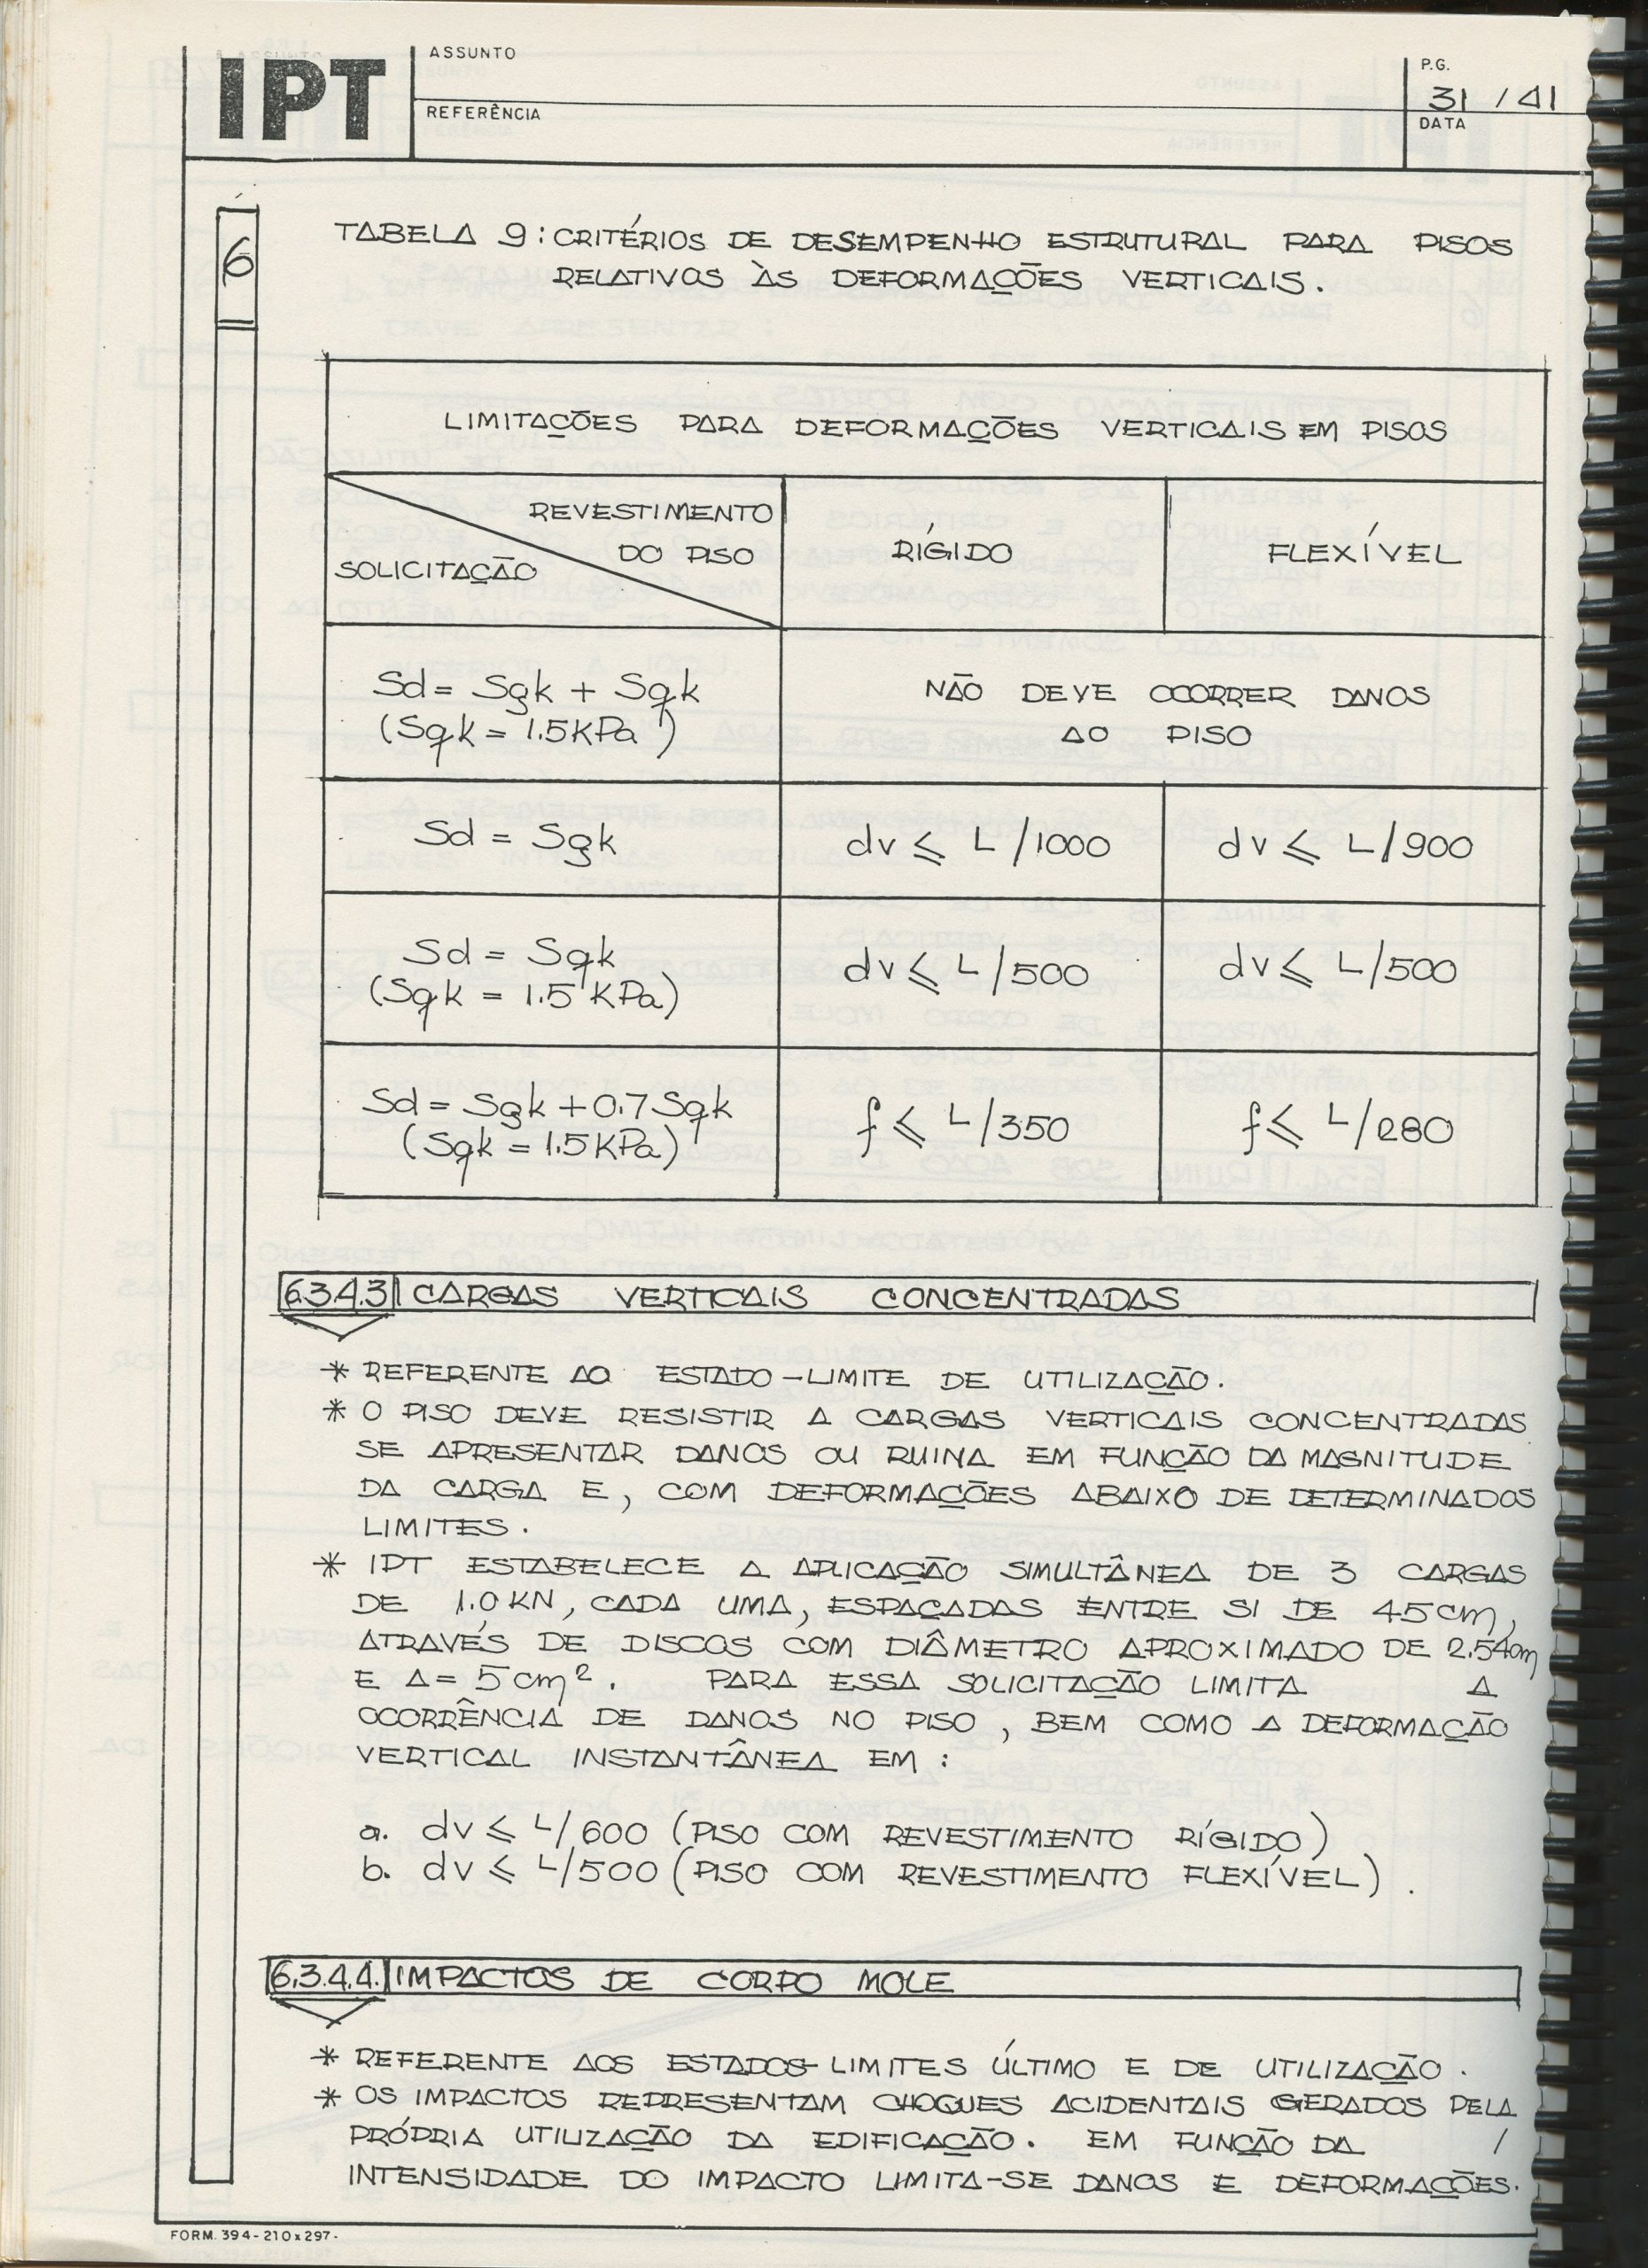 IPT
ASSUNTO
REFERÊNCIA
P.G.
31 / 41
DATA
6
TABELA 9: CRITÉRIOS DE DESEMPENHO ESTRUTURAL PARA PISOS
RELATIVOS ÀS DEFORMAÇÕES VERTICAIS.
LIMITAÇÕES PARA DEFORMAÇÕES VERTICAIS EM PISOS
REVESTIMENTO
DO PISO
SOLICITAÇÃO
RÍGIDO
FLEXÍVEL
Sd = Sgk + Sqk
(Sqk = 1.5KPa)
NÃO DEVE OCORRER DANOS
AO PISO
Sd = Sgk
dv ⩽ L/1000
dv ⩽ L/900
Sd = Sqk
(Sqk = 1.5 KPa)
dv ⩽ L/500
dv ⩽ L/500
Sd = Sgk + 0.7 Sqk
(Sqk = 1.5KPa)
f ⩽ L/350
f ⩽ L/280
6.3.4.3 CARGAS VERTICAIS CONCENTRADAS
* REFERENTE AO ESTADO-LIMITE DE UTILIZAÇÃO.
* O PISO DEVE RESISTIR A CARGAS VERTICAIS CONCENTRADAS
SE APRESENTAR DANOS OU RUINA EM FUNÇÃO DA MAGNITUDE
DA CARGA E, COM DEFORMAÇÕES ABAIXO DE DETERMINADOS
LIMITES.
* IPT ESTABELECE A APLICAÇÃO SIMULTÂNEA DE 3 CARGAS
DE 1.0 KN, CADA UMA, ESPAÇADAS ENTRE SI DE 45 cm,
ATRAVÉS DE DISCOS COM DIÂMETRO APROXIMADO DE 2.54cm
E A = 5 cm². PARA ESSA SOLICITAÇÃO LIMITA A
OCORRÊNCIA DE DANOS NO PISO, BEM COMO A DEFORMAÇÃO
VERTICAL INSTANTÂNEA EM:
a. dv ⩽ L/600 (PISO COM REVESTIMENTO RÍGIDO)
b. dv ⩽ L/500 (PISO COM REVESTIMENTO FLEXÍVEL).
6.3.4.4. IMPACTOS DE CORPO MOLE
* REFERENTE AOS ESTADOS-LIMITES ÚLTIMO E DE UTILIZAÇÃO.
* OS IMPACTOS REPRESENTAM CHOQUES ACIDENTAIS GERADOS PELA
PRÓPRIA UTILIZAÇÃO DA EDIFICAÇÃO. EM FUNÇÃO DA /
INTENSIDADE DO IMPACTO LIMITA-SE DANOS E DEFORMAÇÕES.
FORM. 394-210x297-